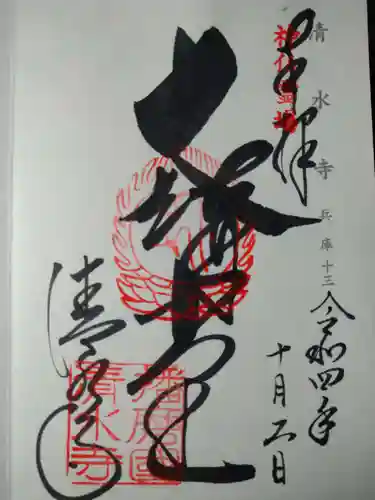 奉拝
清水寺 兵庫十三
令和四年
十月二日
大講堂
清水寺
神仏霊場
播磨国
清水寺